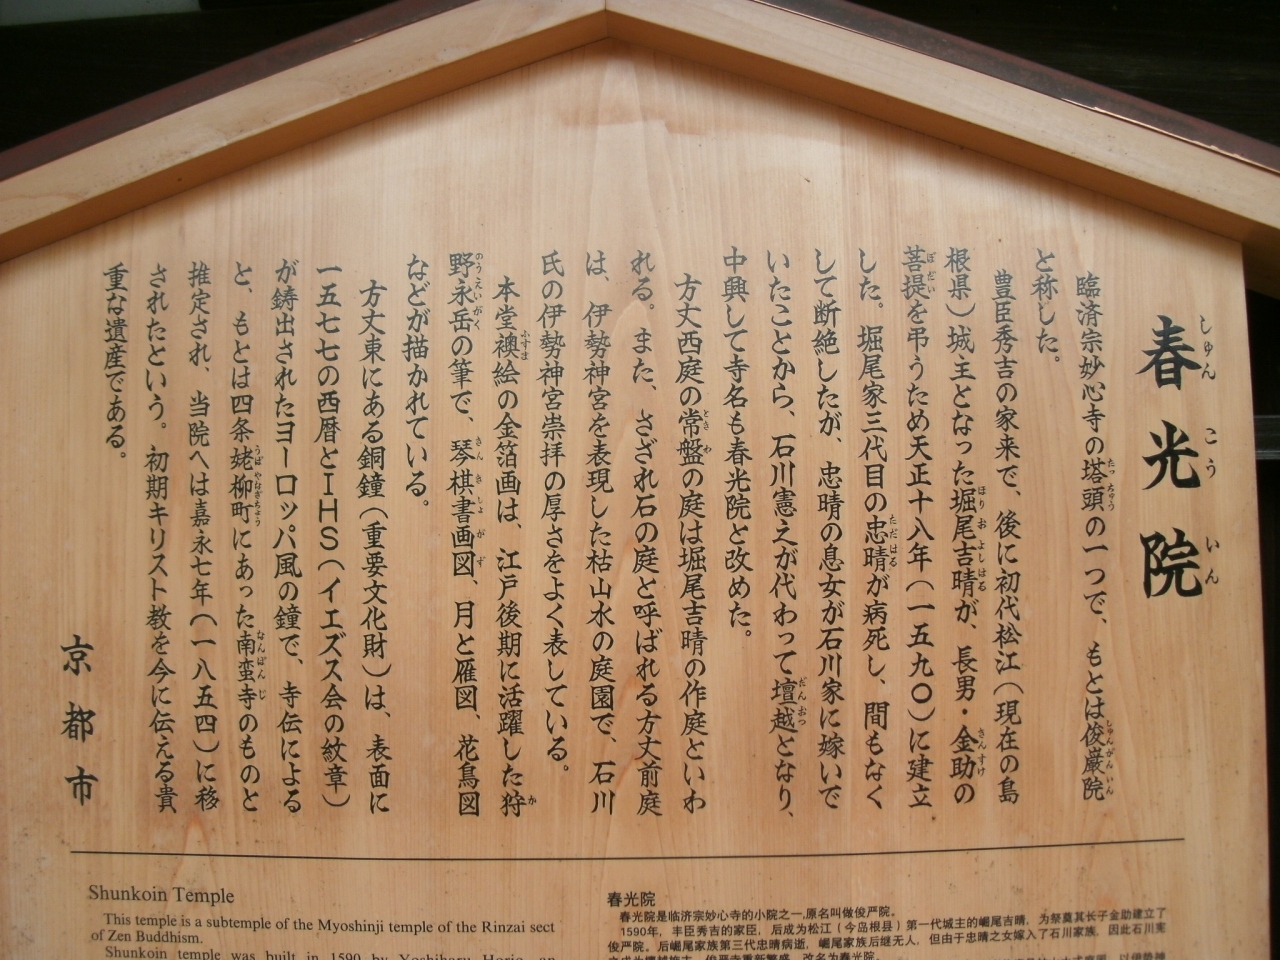 春光院
しゅんこういん
臨済宗妙心寺の塔頭の一つで、もとは俊巌院
と称した。
豊臣秀吉の家来で、後に初代松江(現在の島
根県)城主となった堀尾吉晴が、長男・金助の
菩提を弔うため天正十八年(一五九〇)に建立
した。堀尾家三代目の忠晴が病死し、間もなく
して断絶したが、忠晴の息女が石川家に嫁いで
いたことから、石川憲之が代わって壇越となり、
中興して寺名も春光院と改めた。
方丈西庭の常盤の庭は堀尾吉晴の作庭といわ
れる。また、さざれ石の庭と呼ばれる方丈前庭
は、伊勢神宮を表現した枯山水の庭園で、石川
氏の伊勢神宮崇拝の厚さをよく表している。
本堂襖絵の金箔画は、江戸後期に活躍した狩
野永岳の筆で、琴棋書画図、月と雁図、花鳥図
などが描かれている。
方丈東にある銅鐘(重要文化財)は、表面に
一五七七の西暦とIHS(イエズス会の紋章)
が鋳出されたヨーロッパ風の鐘で、寺伝による
と、もとは四条姥柳町にあった南蛮寺のものと
推定され、当院へは嘉永七年(一八五四)に移
されたという。初期キリスト教を今に伝える貴
重な遺産である。
京都市
Shunkoin Temple
This temple is a subtemple of the Myoshinji temple of the Rinzai sect
of Zen Buddhism.
Shunkoin temple was built in 1590 by Yoshiharu Horio, an
春光院
春光院是临济宗妙心寺的小院之一,原名叫做俊严院。
1590年,丰臣秀吉的家臣,后成为松江(今岛根县)第一代城主的崛尾吉晴,为祭奠其长子金助建立了
俊严院。后崛尾家族第三代忠晴病逝,崛尾家族后继无人,但由于忠晴之女嫁入了石川家族,因此石川宪